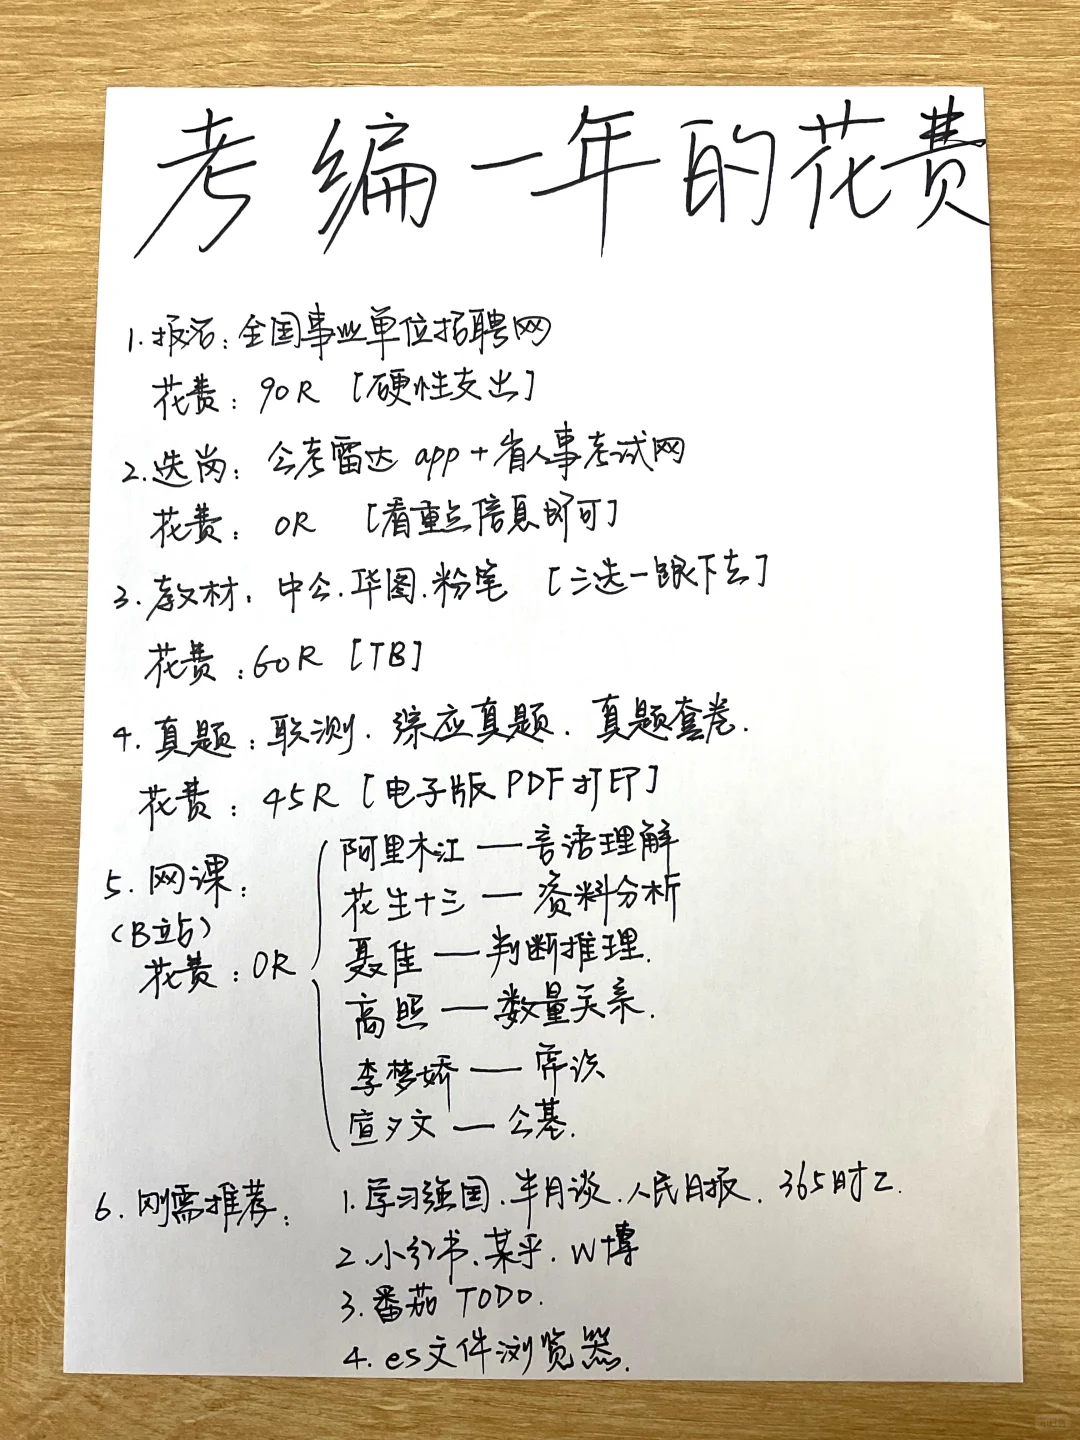 考编一年的花费
1.报名:全国事业单位招聘网
花费:90R [硬性支出]
2.选岗:公考雷达 app+省人事考试网
花费:0R [看重点信息即可]
3.教材:中公.华图.粉笔 [三选一跟下去]
花费:60R [TB]
4.真题:联测.综应真题.真题套卷.
花费:45R [电子版PDF打印]
5.网课:
(B立占)
花费:0R
阿里木江—言语理解
花生十三—资料分析
聂佳—判断推理.
高照—数量关系.
李梦娇—常识
宣夕文—公基.
6.刚需推荐:
1.学习强国.半月谈.人民日报.365时工.
2.小红书.某乎.W博
3.番茄TODO.
4.es文件浏览器.